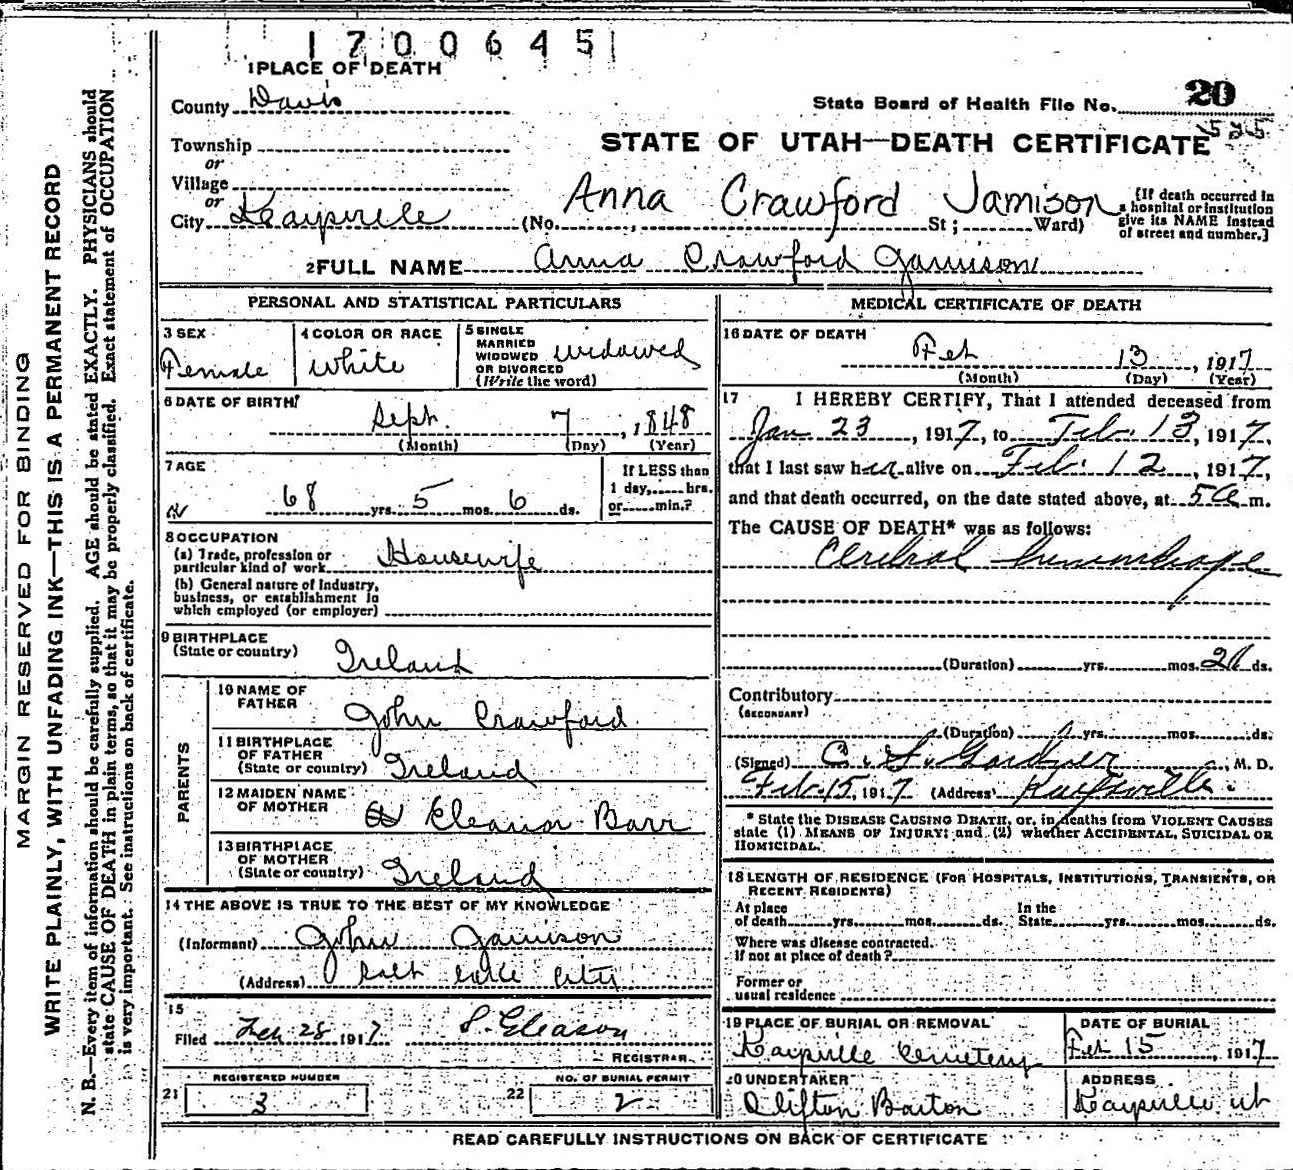 1700645
1 PLACE OF DEATH
County Davis
State Board of Health File No. 20
525
Township
or
Village
or
City Kaysville
STATE OF UTAH—DEATH CERTIFICATE
Anna Crawford Jamison
(No. , St; Ward)
[If death occurred in a hospital or institution give its NAME instead of street and number.]
2 FULL NAME Anna Crawford Jamison
PERSONAL AND STATISTICAL PARTICULARS
3 SEX
Female
4 COLOR OR RACE
white
5 SINGLE MARRIED WIDOWED OR DIVORCED (Write the word)
widowed
6 DATE OF BIRTH
Sept. 7, 1848
(Month) (Day) (Year)
7 AGE
68 yrs. 5 mos. 6 ds.
If LESS than
1 day, hrs.
or min.?
8 OCCUPATION
(a) Trade, profession or
particular kind of work Housewife
(b) General nature of Industry,
business, or establishment in
which employed (or employer)
9 BIRTHPLACE
(State or country)
Ireland
PARENTS
10 NAME OF
FATHER
John Crawford
11 BIRTHPLACE
OF FATHER
(State or country) Ireland
12 MAIDEN NAME
OF MOTHER Eleanor Barr
13 BIRTHPLACE
OF MOTHER
(State or country) Ireland
14 THE ABOVE IS TRUE TO THE BEST OF MY KNOWLEDGE
(Informant) John Jamison
(Address) Salt Lake City
15
Filed Feb 28 1917 S. Gleason
REGISTRAR
21 REGISTERED NUMBER
3
22 NO. OF BURIAL PERMIT
2
MEDICAL CERTIFICATE OF DEATH
16 DATE OF DEATH
Feb 13, 1917
(Month) (Day) (Year)
17 I HEREBY CERTIFY, That I attended deceased from
Jan 23, 1917, to Feb. 13, 1917,
that I last saw her alive on Feb. 12, 1917,
and that death occurred, on the date stated above, at 5 a m.
The CAUSE OF DEATH* was as follows:
Cerebral hemorrhage
(Duration) yrs. mos. 21 ds.
Contributory
(SECONDARY)
(Duration) yrs. mos. ds.
(Signed) C. S. Gardner, M. D.
Feb. 15, 1917 (Address) Kaysville
* State the DISEASE CAUSING DEATH, or, in deaths from VIOLENT CAUSES
state (1) MEANS OF INJURY; and (2) whether ACCIDENTAL, SUICIDAL OR
HOMICIDAL.
18 LENGTH OF RESIDENCE (FOR HOSPITALS, INSTITUTIONS, TRANSIENTS, OR
RECENT RESIDENTS)
At place In the
of death yrs. mos. ds. State yrs. mos. ds.
Where was disease contracted.
if not at place of death?
Former or
usual residence
19 PLACE OF BURIAL OR REMOVAL
Kaysville Cemetery
DATE OF BURIAL
Feb 15, 1917
20 UNDERTAKER
Clifton Barton
ADDRESS
Kaysville Ut
READ CAREFULLY INSTRUCTIONS ON BACK OF CERTIFICATE
MARGIN RESERVED FOR BINDING
WRITE PLAINLY, WITH UNFADING INK—THIS IS A PERMANENT RECORD
N. B.—Every item of information should be carefully supplied. AGE should be stated EXACTLY. PHYSICIANS should
state CAUSE OF DEATH in plain terms, so that it may be properly classified. Exact statement of OCCUPATION
is very important. See instructions on back of certificate.